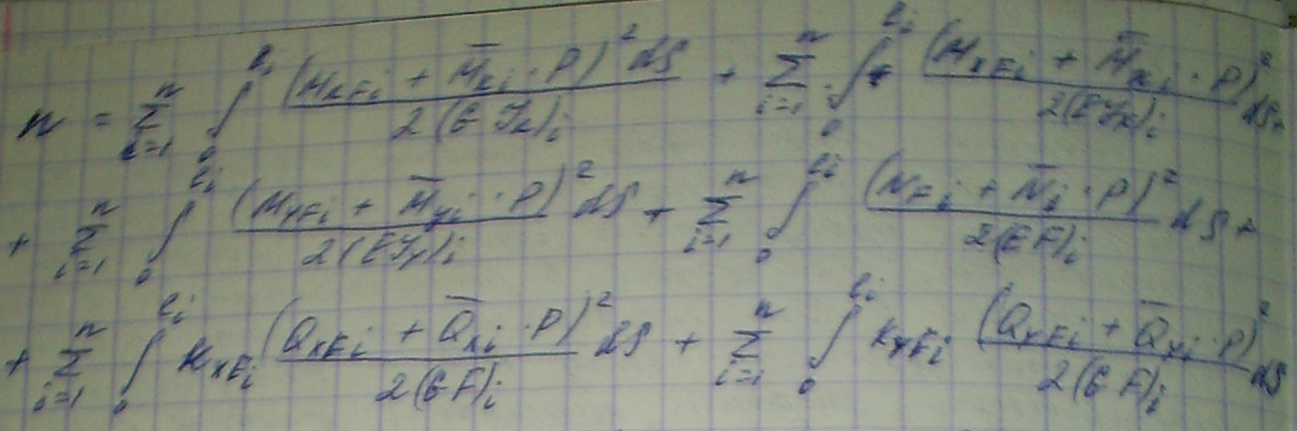 n = \sum_{i=1}^{n} \int_{0}^{l_i} \frac{(M_{кFi} + \bar{M}_{кi} \cdot P)^2 ds}{2(GJ_к)_i} + \sum_{i=1}^{n} \int_{0}^{l_i} \frac{(M_{xFi} + \bar{M}_{xi} \cdot P)^2}{2(EJ_x)_i} ds +
+ \sum_{i=1}^{n} \int_{0}^{l_i} \frac{(M_{yFi} + \bar{M}_{yi} \cdot P)^2}{2(EJ_y)_i} ds + \sum_{i=1}^{n} \int_{0}^{l_i} \frac{(N_{Fi} + \bar{N}_i \cdot P)^2}{2(EF)_i} ds +
+ \sum_{i=1}^{n} \int_{0}^{l_i} к_{xFi} \frac{(Q_{xFi} + \bar{Q}_{xi} \cdot P)^2}{2(GF)_i} ds + \sum_{i=1}^{n} \int_{0}^{l_i} к_{yFi} \frac{(Q_{yFi} + \bar{Q}_{yi} \cdot P)^2}{2(GF)_i} ds